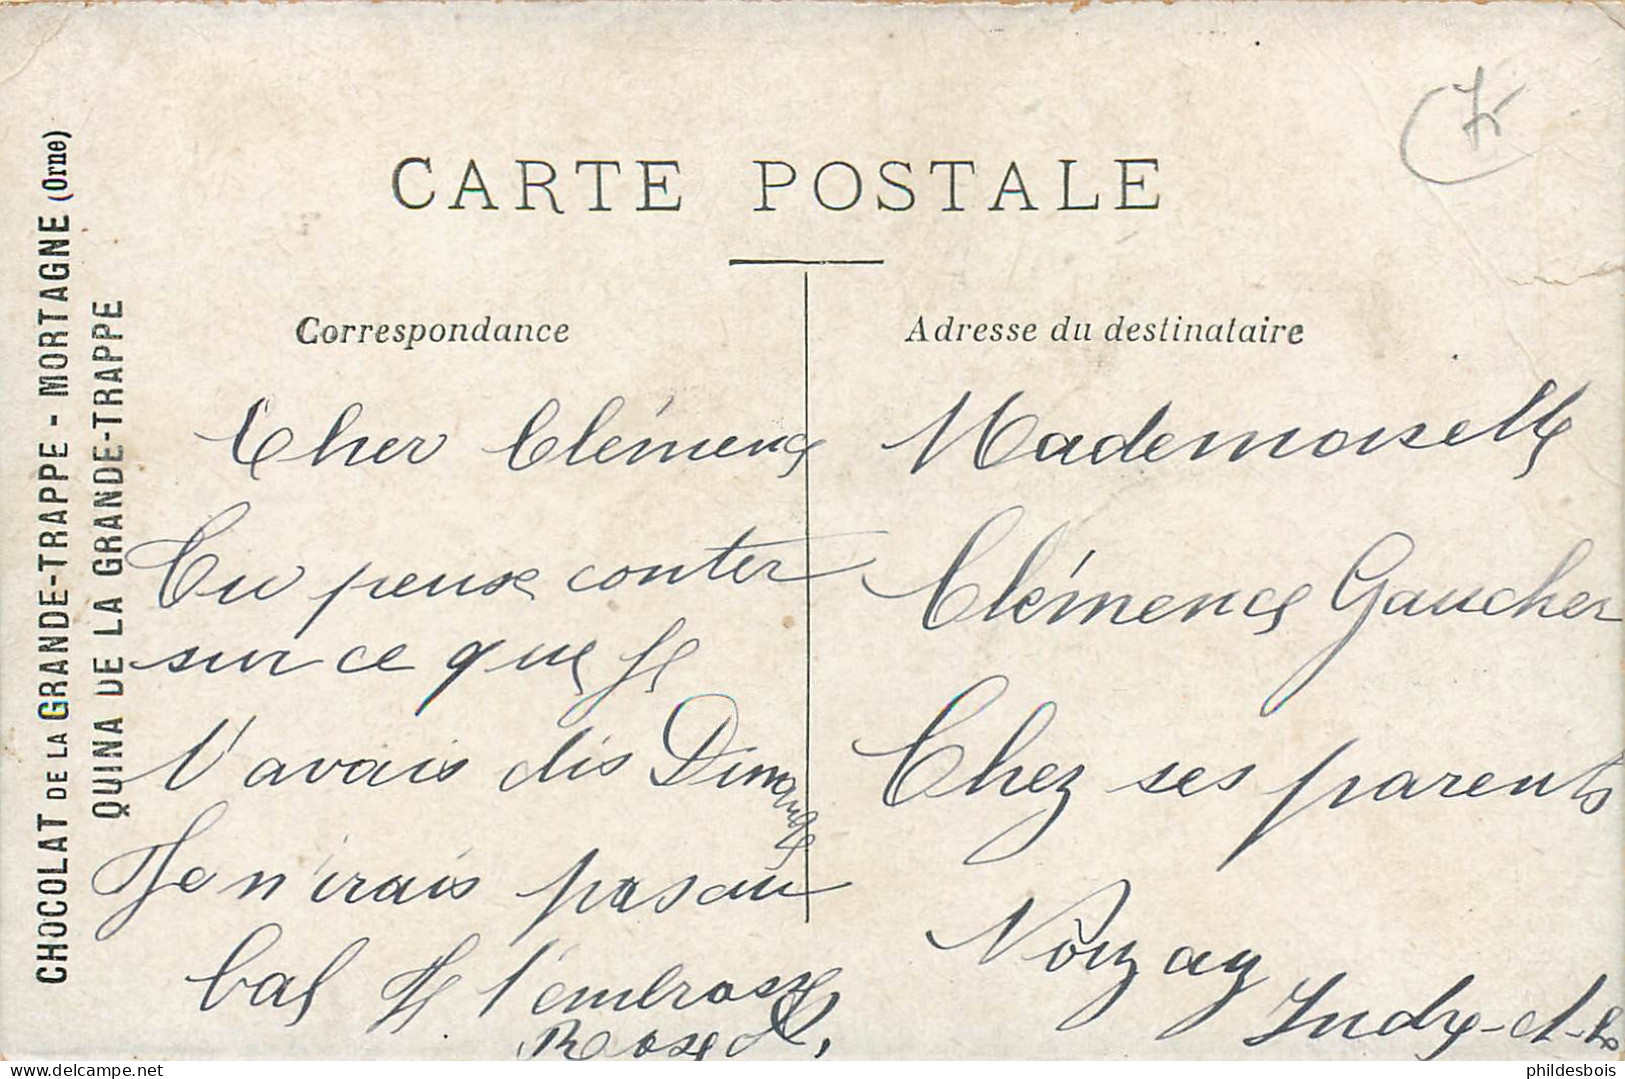 CARTE POSTALE
CHOCOLAT DE LA GRANDE-TRAPPE - MORTAGNE (Orne)
QUINA DE LA GRANDE-TRAPPE
Correspondance
Cher Clémence
Tu peux conter
sur ce que je
t'avais dis Dimanche
Je n'irais pas au
bal Je t'embrasse
Rose
Adresse du destinataire
Mademoiselle
Clémence Gaucher
Chez ses parents
Noizay
Indre-et-L
phildesbois